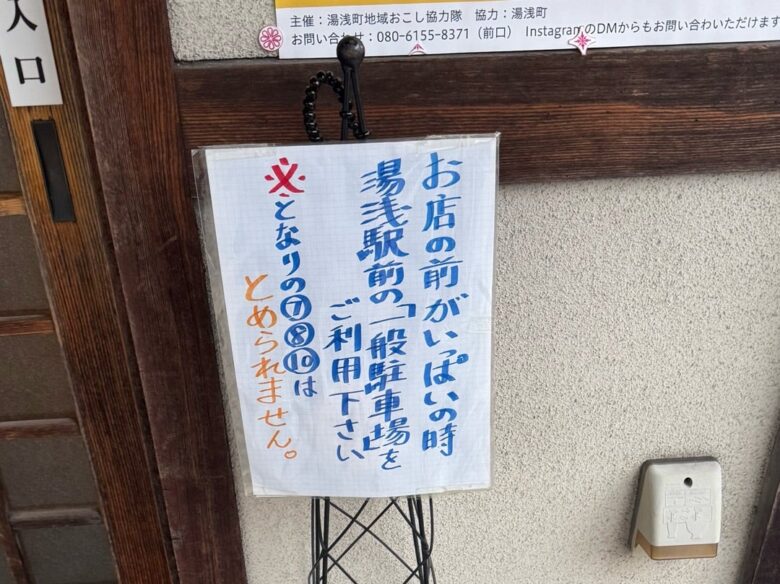 入口
主催：湯浅町地域おこし協力隊　協力：湯浅町
お問い合わせ：080-6155-8371（前口）　InstagramのDMからもお問い合わせいただけます
お店の前がいっぱいの時
湯浅駅前の「一般駐車場」を
ご利用下さい
※となりの⑦⑧⑩は
とめられません。